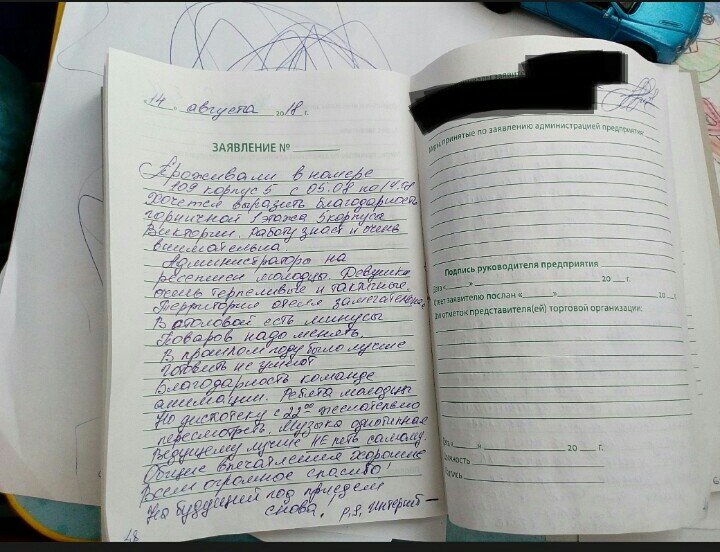 « 14 » августа 2018 г.
ЗАЯВЛЕНИЕ №
Проживали в номере
109 корпус 5 с 05.08 по 14.08
Хочется выразить благодарность
горничной 1 этажа 5 корпуса
Виктории. Работу знает и очень
внимательна.
Администраторы на
ресепшн молодцы. Девушки
очень терпеливые и тактичные.
Территория отеля замечательная.
В столовой есть минусы
Поваров надо менять.
В прошлом году было лучше
готовить не умеют
Благодарность команде
анимации. Ребята молодцы
Но дискотеку с 22⁰⁰ желательно
пересмотреть. Музыка однотипная
Ведущему лучше НЕ петь самому.
Общие впечатления хорошие
Всем огромное спасибо!
На будущий год приедем
снова! P.S. Интернет —
48
заявителя
Меры, принятые по заявлению администрацией предприятия:
Подпись руководителя предприятия
Дата « » 20 г.
Ответ заявителю послан « » 20 г.
Для отметок представителя(ей) торговой организации:
Дата « » 20 г.
Должность
Подпись